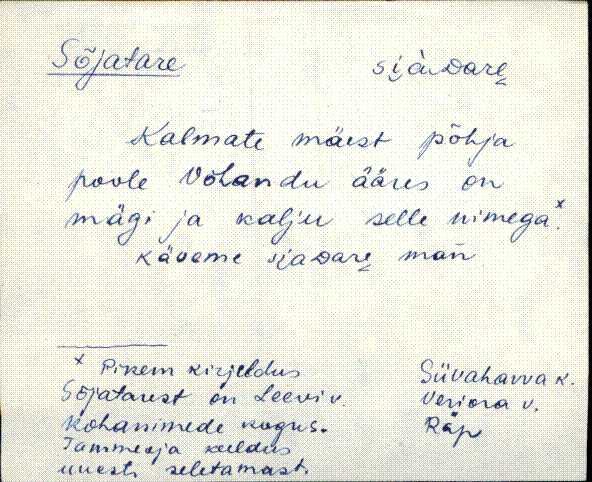 Sõjatare
sjàᴅarę
Kalmate mäest põhja
poole Võhandu ääres on
mägi ja kalju selle nimega.ˣ
käveme sjaᴅarę mań
x Pikem kirjeldus
Sõjatarest on Leevi v.
kohanimede kogus.
Tammeoja keeldus
uuesti seletamast.
Süvahavva k.
Veriora v.
Räp